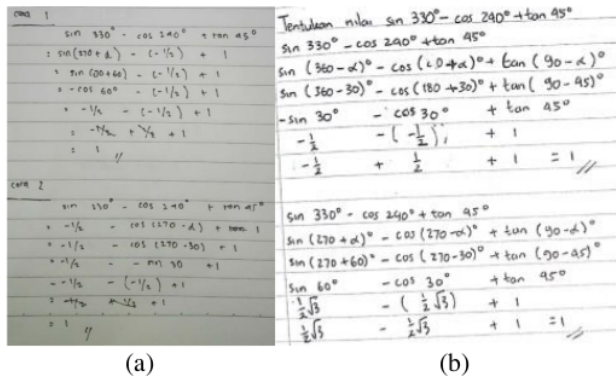 cara 1
sin 330° - cos 240° + tan 45°
= sin (270 + α) - (-1/2) + 1
= sin (270+60) - (-1/2) + 1
= -cos 60° - (-1/2) + 1
= -1/2 - (-1/2) + 1
= -1/2 + 1/2 + 1
= 1 //
cara 2
sin 330° - cos 240° + tan 45°
= -1/2 - cos (270 - α) + tan 1
= -1/2 - cos (270 - 30) + 1
= -1/2 - - sin 30 + 1
= -1/2 - (-1/2) + 1
= -1/2 + 1/2 + 1
= 1 //
(a)
Tentukan nilai sin 330° - cos 240° + tan 45°
sin 330° - cos 240° + tan 45°
sin (360 - α)° - cos (180 + α)° + tan (90 - α)°
sin (360 - 30)° - cos (180 + 30)° + tan (90 - 45)°
-sin 30° - cos 30° + tan 45°
-1/2 - (-1/2) + 1
-1/2 + 1/2 + 1 = 1 //
sin 330° - cos 240° + tan 45°
sin (270 + α)° - cos (270 - α)° + tan (90 - α)°
sin (270 + 60)° - cos (270 - 30)° + tan (90 - 45)°
sin 60° - cos 30° + tan 45°
1/2 √3 - (1/2 √3) + 1
1/2 √3 - 1/2 √3 + 1 = 1 //
(b)